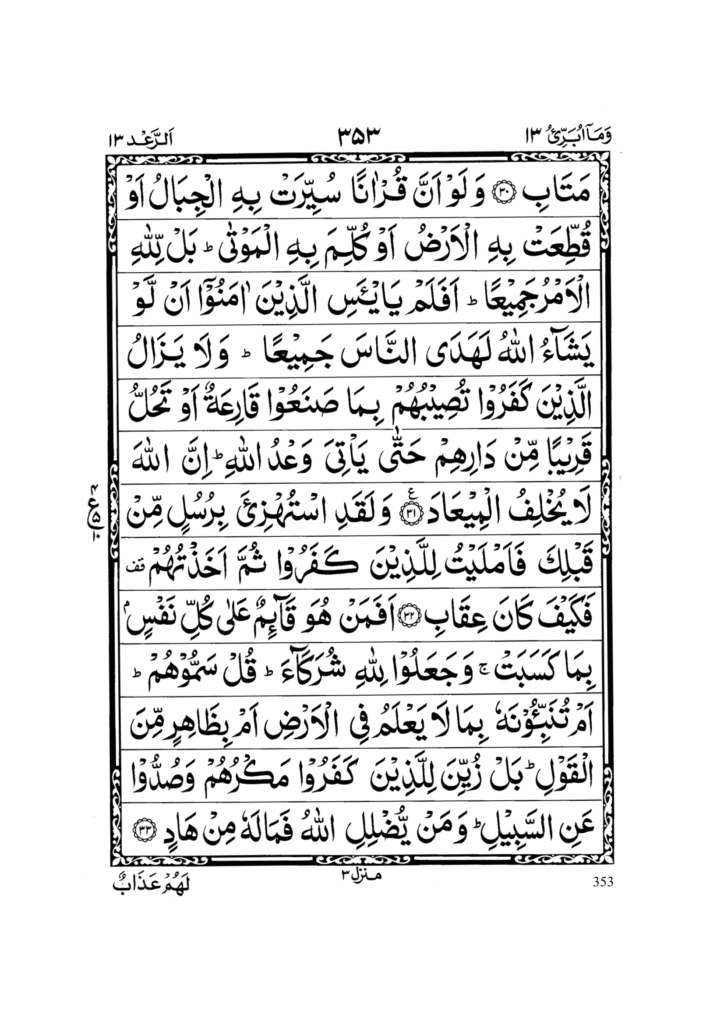 وَمَاۤ اُبَرِّئُ ١٣
٣٥٣
اَلرَّعْد ١٣
مَتَابِ ﴿٣٠﴾ وَلَوْ اَنَّ قُرْاٰنًا سُيِّرَتْ بِهِ الْجِبَالُ اَوْ
قُطِّعَتْ بِهِ الْاَرْضُ اَوْ كُلِّمَ بِهِ الْمَوْتٰى ؕ بَلْ لِّلّٰهِ
الْاَمْرُ جَمِيْعًا ؕ اَفَلَمْ يَايْـَٔسِ الَّذِيْنَ اٰمَنُوْۤا اَنْ لَّوْ
يَشَآءُ اللّٰهُ لَهَدَى النَّاسَ جَمِيْعًا ؕ وَلَا يَزَالُ
الَّذِيْنَ كَفَرُوْا تُصِيْبُهُمْ بِمَا صَنَعُوْا قَارِعَةٌ اَوْ تَحُلُّ
قَرِيْبًا مِّنْ دَارِهِمْ حَتّٰى يَاْتِيَ وَعْدُ اللّٰهِ ؕ اِنَّ اللّٰهَ
لَا يُخْلِفُ الْمِيْعَادَ ﴿٣١﴾ ع وَلَقَدِ اسْتُهْزِئَ بِرُسُلٍ مِّنْ
قَبْلِكَ فَاَمْلَيْتُ لِلَّذِيْنَ كَفَرُوْا ثُمَّ اَخَذْتُهُمْ قف
فَكَيْفَ كَانَ عِقَابِ ﴿٣٢﴾ اَفَمَنْ هُوَ قَآئِمٌ عَلٰى كُلِّ نَفْسٍۭ
بِمَا كَسَبَتْ ۚ وَجَعَلُوْا لِلّٰهِ شُرَكَآءَ ؕ قُلْ سَمُّوْهُمْ ؕ
اَمْ تُنَبِّـُٔوْنَهٗ بِمَا لَا يَعْلَمُ فِي الْاَرْضِ اَمْ بِظَاهِرٍ مِّنَ
الْقَوْلِ ؕ بَلْ زُيِّنَ لِلَّذِيْنَ كَفَرُوْا مَكْرُهُمْ وَصُدُّوْا
عَنِ السَّبِيْلِ ؕ وَمَنْ يُّضْلِلِ اللّٰهُ فَمَا لَهٗ مِنْ هَادٍ ﴿٣٣﴾
353
منزل ٣
لَهُمْ عَذَابٌ